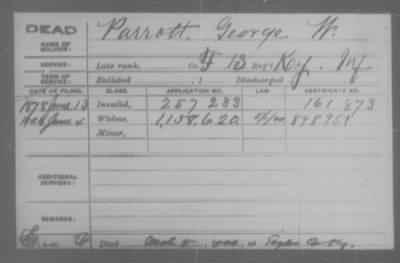 DEAD
NAME OF SOLDIER: Parrott, George W.
SERVICE: Late rank, Co. F, 13 Reg't Ky. Inf
TERM OF SERVICE: Enlisted , 1 Discharged , 1
DATE OF FILING. CLASS. APPLICATION NO. LAW. CERTIFICATE NO.
1878 June 13 Invalid, 257 283 161 873
June 4 Widow, 1,158,620 848951
Minor,
ADDITIONAL SERVICES:
REMARKS:
Died , at Taylor Co Ky.